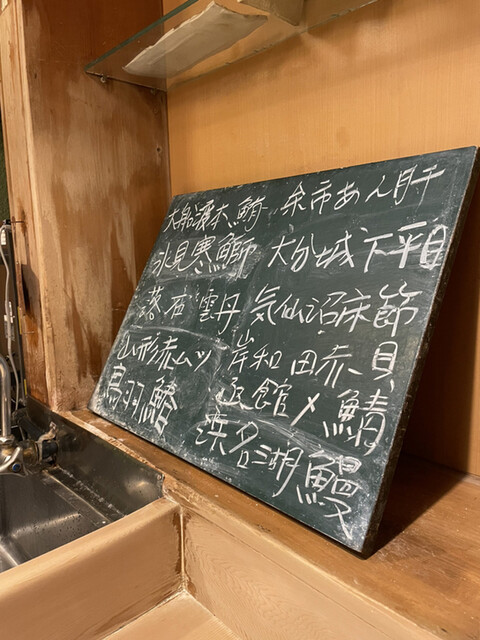 大船渡本鮪
氷見寒鰤
落石雲丹
山形赤ムツ
鳥羽鰆
余市あん肝
大分城下平目
気仙沼床節
岸和田赤貝
函館〆鯖
浜名湖鰻